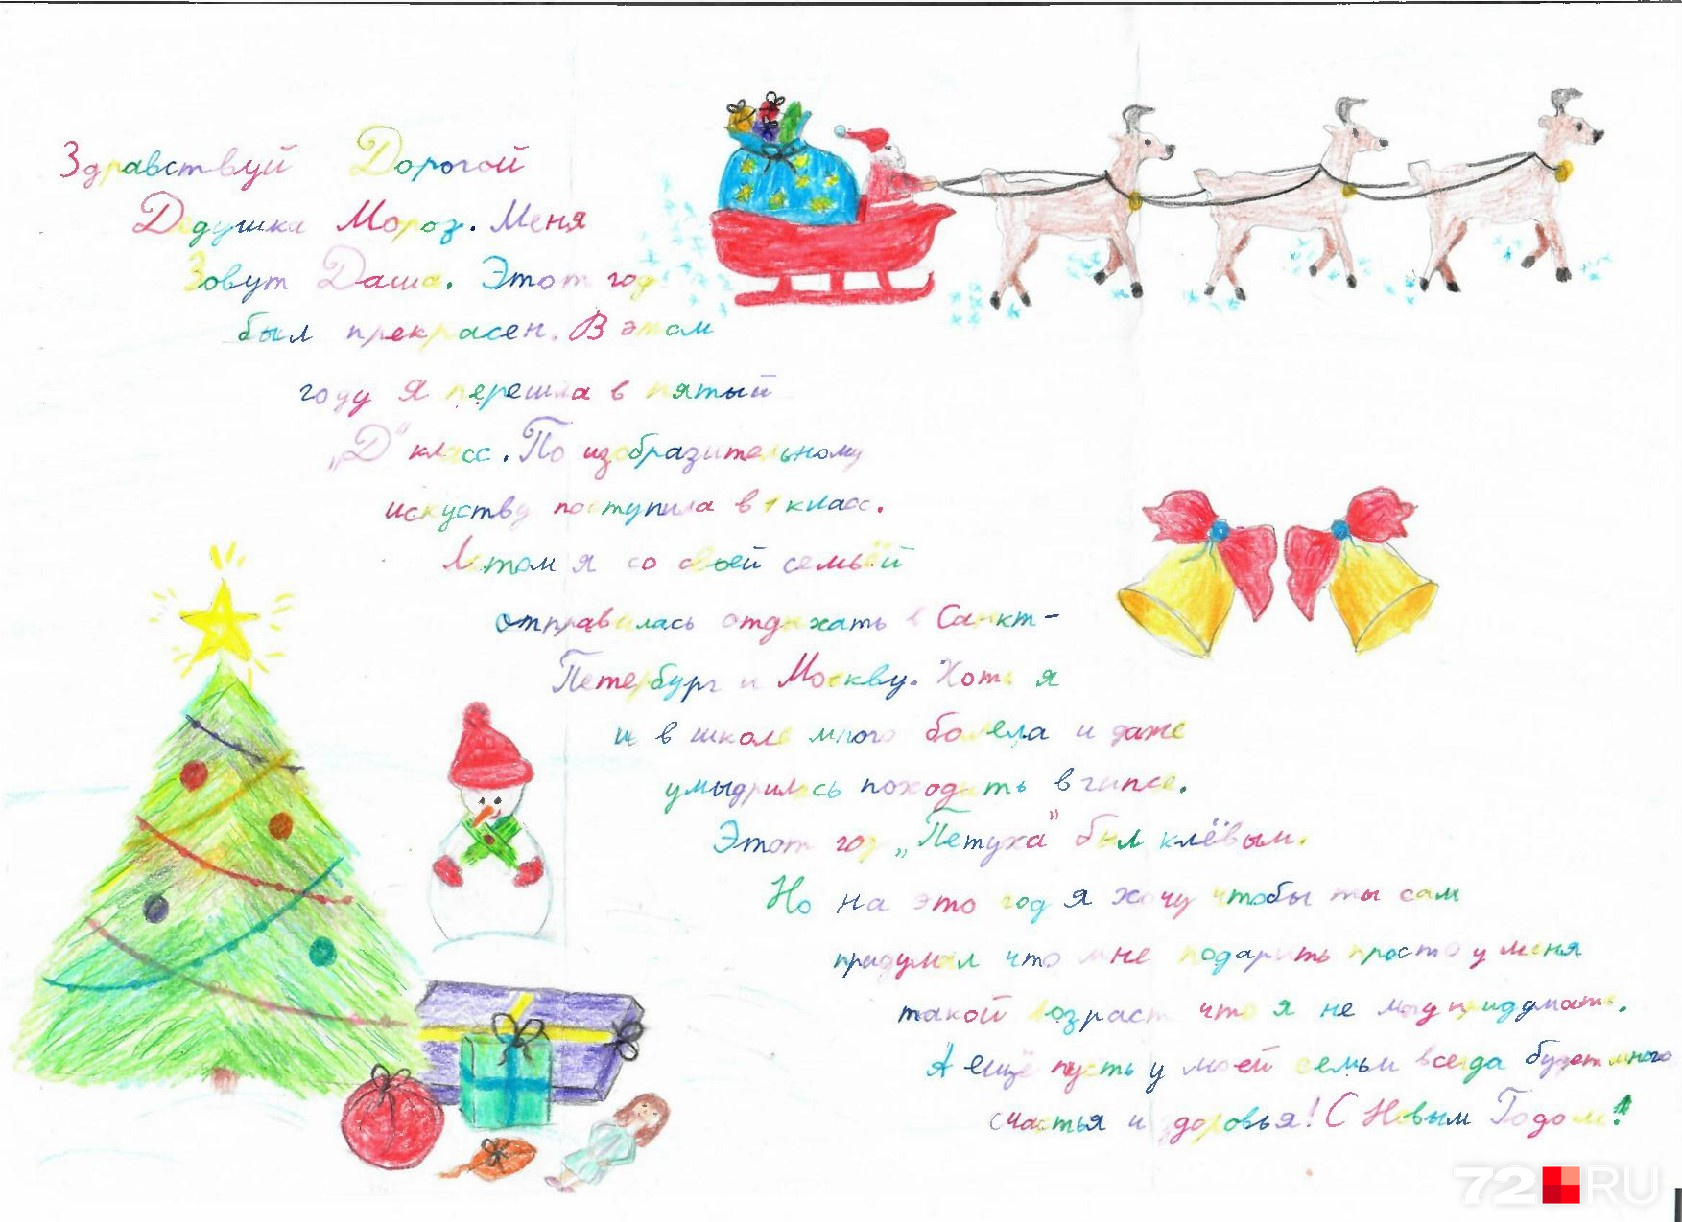 Здравствуй Дорогой
Дедушка Мороз. Меня
Зовут Даша. Этот год
был прекрасен. В этом
году я перешла в пятый
„Д" класс. По изобразительному
искуству поступила в 1 класс.
Летом я со своей семьёй
отправилась отдыхать в Санкт-
Петербург и Москву. Хотя я
и в школе много болела и даже
умыдрилась походить в гипсе.
Этот год „Петуха" был клёвым.
Но на это год я хочу чтобы ты сам
придумал что мне подарить просто у меня
такой возраст что я не могу придумать.
А ещё пусть у моей семьи всегда будет много
счастья и здоровья! С Новым Годом!
72.RU